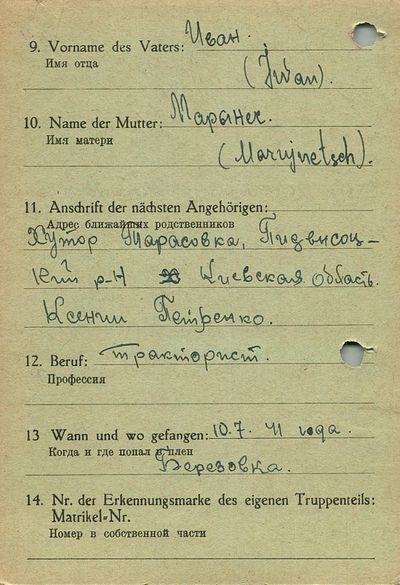 9. Vorname des Vaters: Иван.
Имя отца
(Iwan).
10. Name der Mutter: Марынеч.
Имя матери
(Marujnetsch).
11. Anschrift der nächsten Angehörigen:
Адрес ближайших родственников
Хутор Тарасовка, Пидвисоц-
кий р-н Киевская область.
Ксении Петренко.
12. Beruf: тракторист.
Профессия
13 Wann und wo gefangen: 10.7. 41 года.
Когда и где попал в плен
Березовка.
14. Nr. der Erkennungsmarke des eigenen Truppenteils:
Matrikel-Nr.
Номер в собственной части